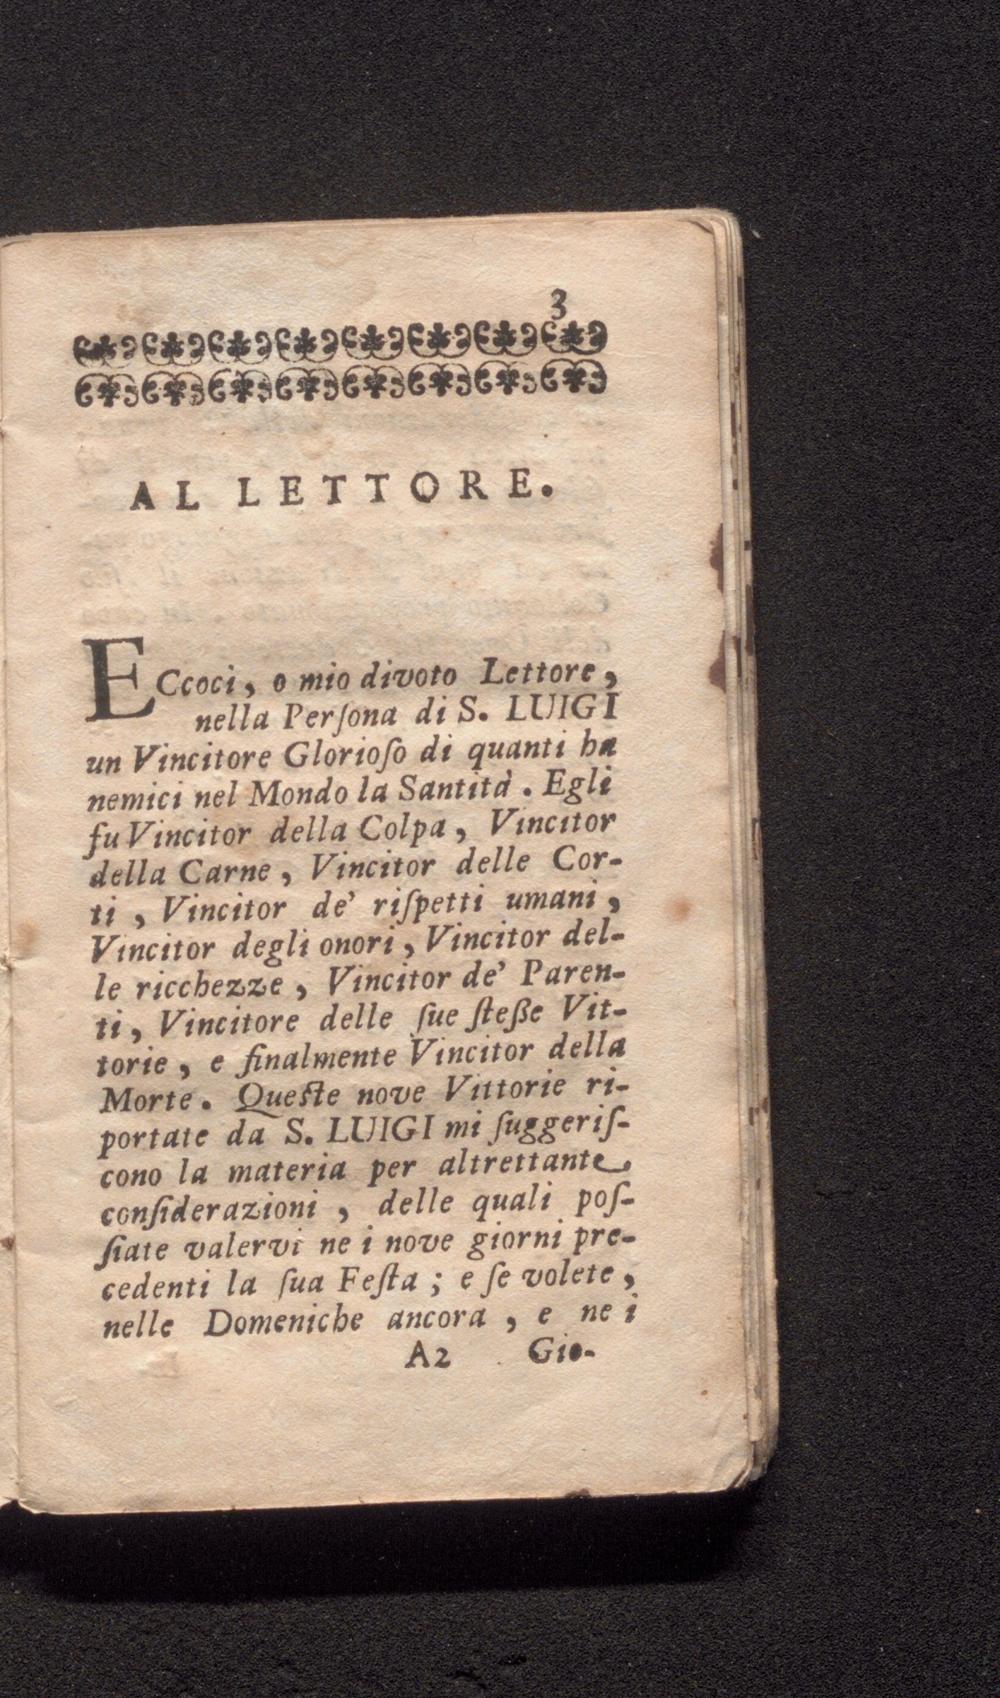 3
AL LETTORE.
ECcoci, o mio divoto Lettore,
nella Perſona di S. LUIGI
un Vincitore Glorioſo di quanti ha
nemici nel Mondo la Santità. Egli
fu Vincitor della Colpa, Vincitor
della Carne, Vincitor delle Cor-
ti, Vincitor de' riſpetti umani,
Vincitor degli onori, Vincitor del-
le ricchezze, Vincitor de' Paren-
ti, Vincitore delle ſue ſteße Vit-
torie, e finalmente Vincitor della
Morte. Queſte nove Vittorie ri-
portate da S. LUIGI mi ſuggeriſ-
cono la materia per altrettante
conſiderazioni, delle quali poſ-
ſiate valervi ne i nove giorni pre-
cedenti la ſua Feſta; e ſe volete,
nelle Domeniche ancora, e ne i
A2 Gio-